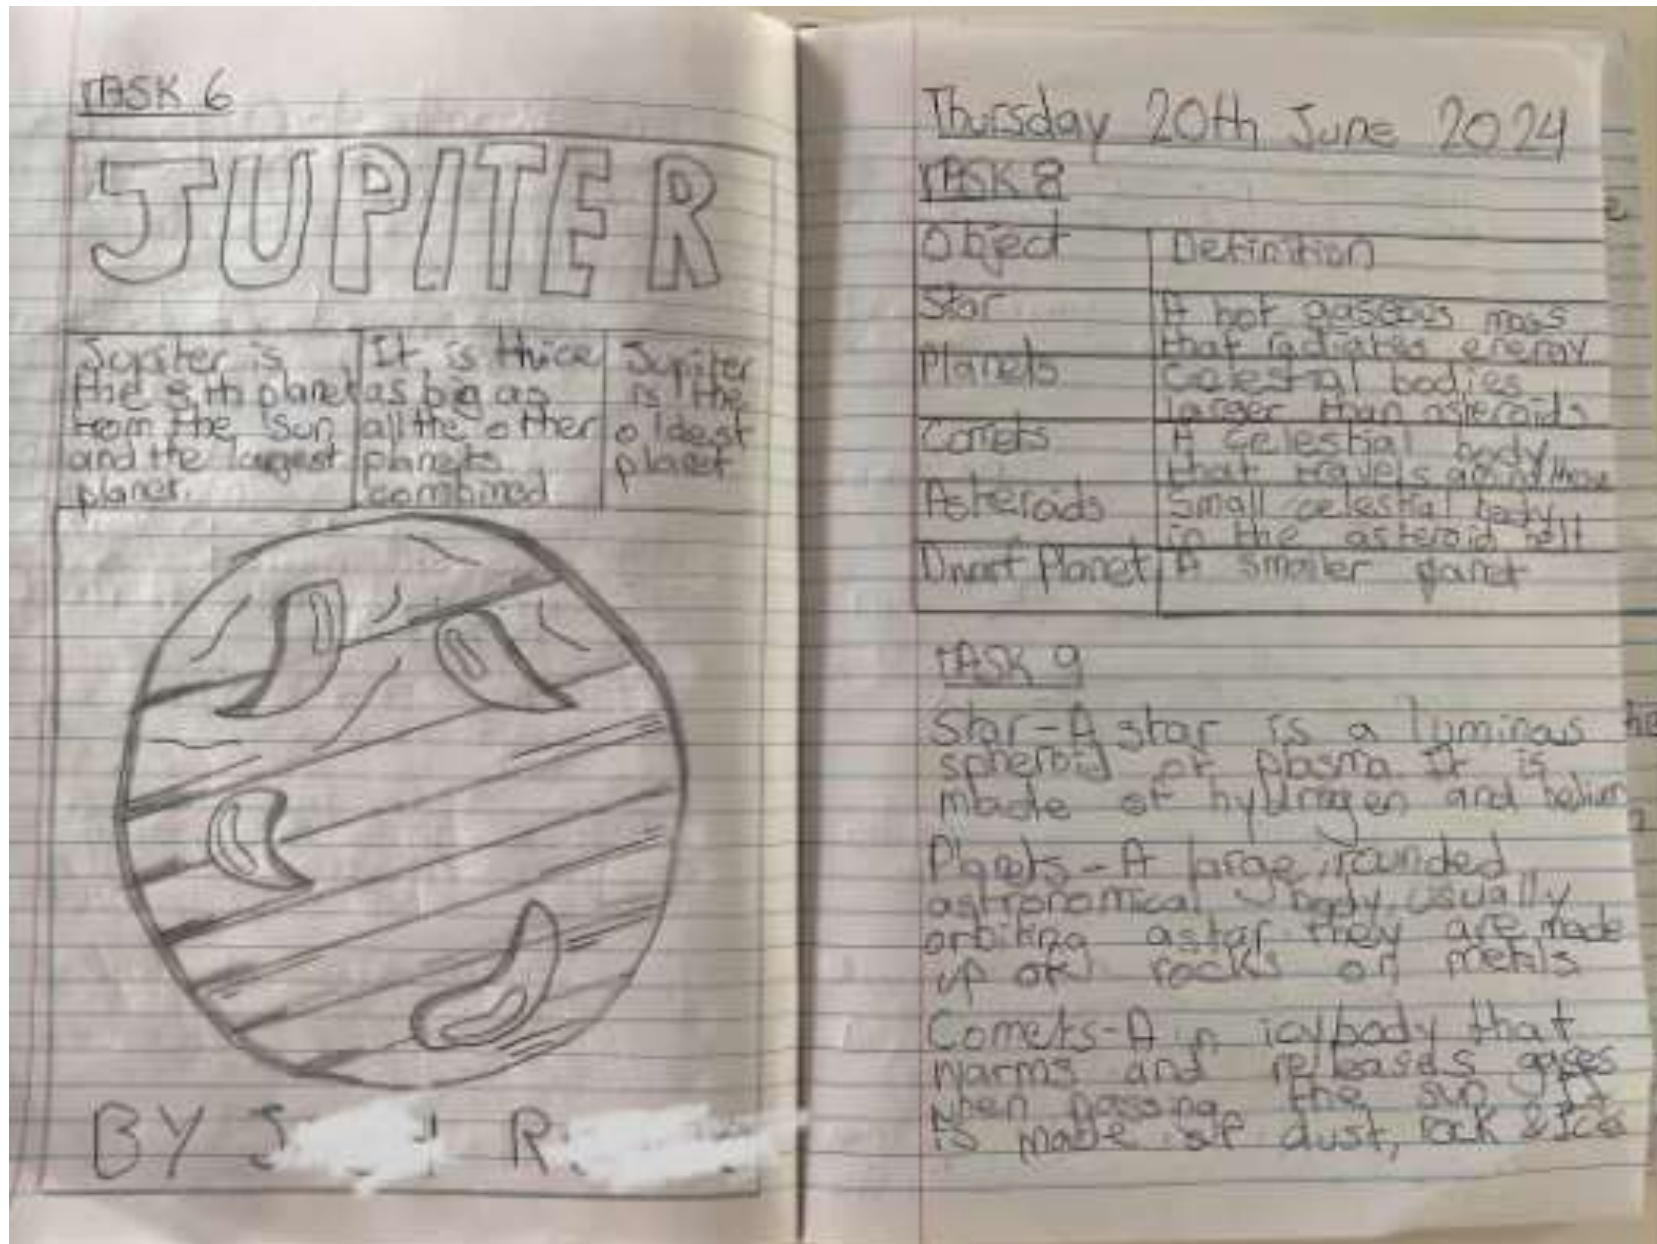 TASK 6
JUPITER
Jupiter is
the 5th planet
from the Sun
and the largest
planet.
It is thice
as big as
all the other
planets
combined
Jupiter
is the
oldest
planet
BY J R
Thursday 20th June 2024
TASK 8
Object
Definition
Star
A hot gaseous mass
that radiates energy
Planets
Celestial bodies
larger than asteroids
Comets
A celestial body
that travels around
Asteroids
Small celestial body
in the asteroid belt
Dwarf Planet
A smaller planet
TASK 9
Star-A star is a luminous
spheroid of plasma It is
made of hydrogen and helium
Planets-A large, rounded
astronomical body, usually
orbiting a star they are made
up of rocks or metals
Comets-A in icy body that
warms and releases gases
when passing the sun It
is made of dust, rock & Ice